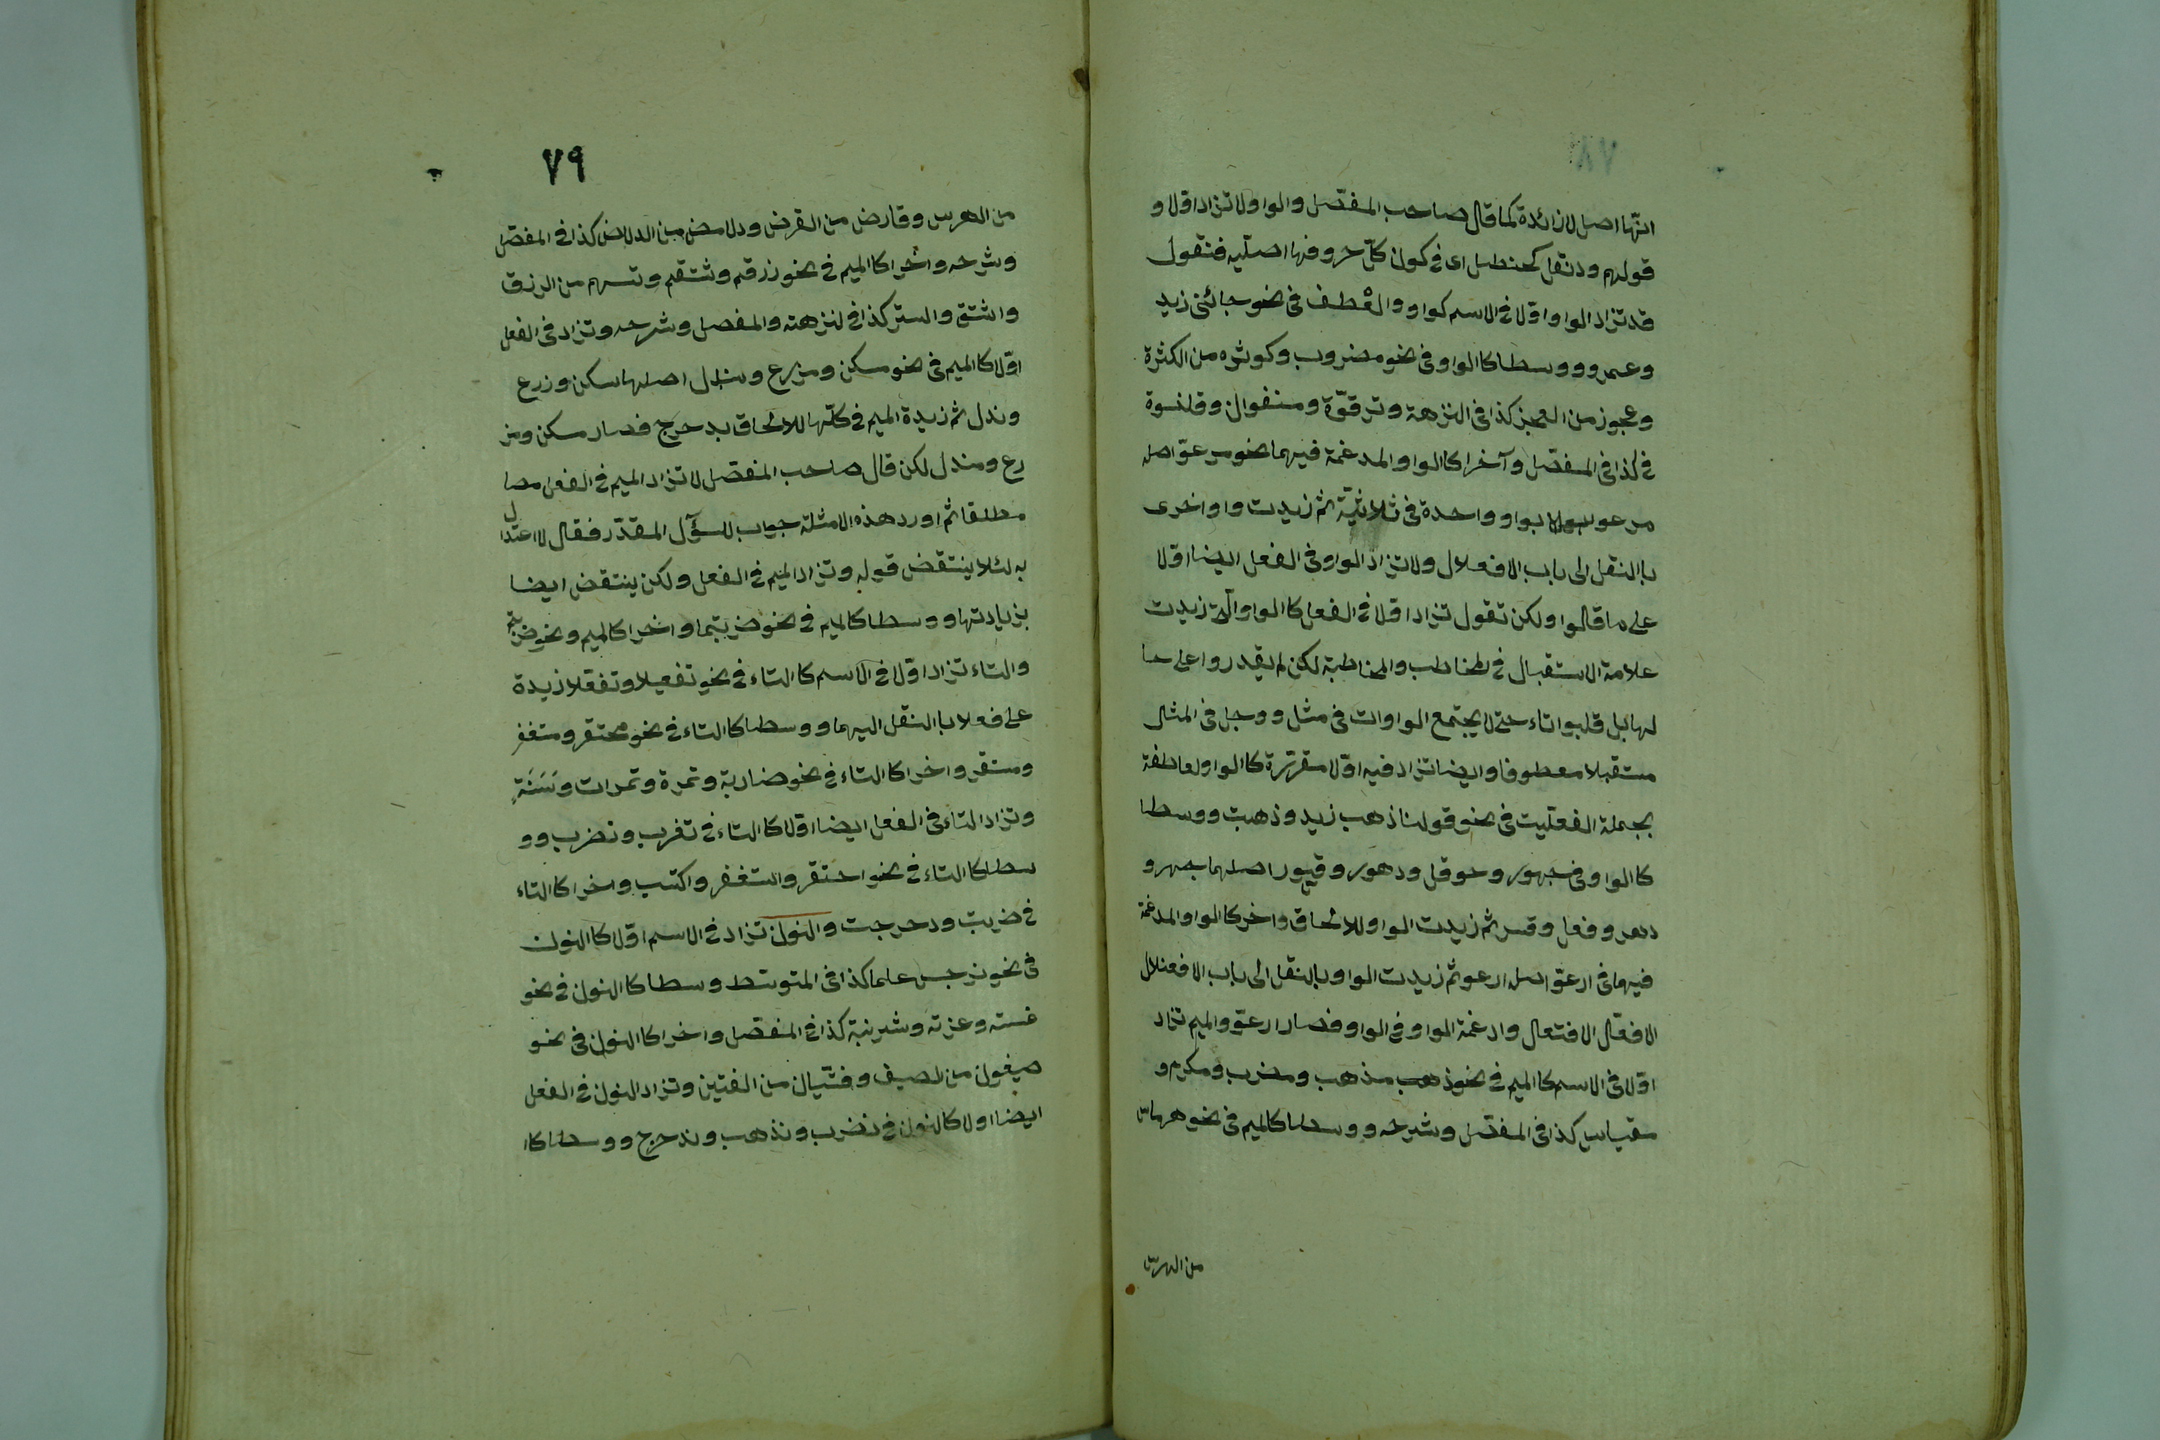 ٧٨
انها اصل لا زائدة كما قال صاحب المفصل والواو لا تزاد اولا و
قولهم ودنقل كحنطل اى فى كون كل حروفها اصلية فنقول
قد تزاد الواو اولا فى الاسم كواو والعطف فى نحو جائنى زيد
وعمرو ووسطا كا الواو فى نحو مضروب وكوثره من الكثرة
وعجوز من العجز كذا فى النزهة وترقوة ومنفوان وقلنسوة
فى كذا فى المفصل وآخرا كا الواو المدغمة فيهما نحو مرعو اصله
مرعو بواو واحدة فى ثلاثية ثم زيدت واو اخرى
با النقل الى باب الافعلال ولا تزاد الواو فى الفعل ايضا اولا
على ما قالوا ولكن تقول تزاد اولا فى الفعل كا الواو التى زيدت
علامة الاستقبال فى لمخاطب والمخاطبة لكن لم يقدروا على حا
لها بل قلبوا تاء حتى لا يجتمع الواوات فى مثل ووجل فى المثال
مستقبلا معطوفا وايضا تزاد فيه اولا مقررة كا الواو لعاطفة
بجملة الفعليت فى نحو قولنا ذهب زيد وذهبت ووسطا
كا الواو فى جهور وحوقل ودهور وقيور اصلهما جهر و
دهر وفعل وقسر ثم زيدت الواو للالحاق واخر كا الواو المدغمة
فيهما فى ارعو اصله ارعو ثم زيدت الواو با النقل الى باب الافعنلال
الافقال الافتعال وادغمة الواو فى الواو فصار ارعو والميم تزاد
اولا فى الاسم كا الميم فى نحو ذهب مذهب ومضرب ومكرم و
مقياس كذا فى المفصل وشرحه ووسطا كالميم فى نحو هرماس
من الهرس
٧٩
من الهرس وقارض من القرض ودلامص من الدلاص كذا فى المفصل
وشرحه واخرا كا الميم فى نحو زرقم وشتقم وتسهم من الزرق
والشتق والستر كذا فى لنزهته والمفصل وشرحه وتزاد فى الفعل
اولا كا الميم فى نحو مسكن ومزرع ومندل اصلها سكن وزرع
وندل ثم زيدة الميم فى كلها للالحاق بدحرج فصار مسكن ومز
رع ومندل لكن قال صاحب المفصل لا تزاد الميم فى الفعل مصا
مطلقا ثم اورد هذه الامثلة جواب للسؤآل المقدر فقال لا اعتدال
به لئلا ينتقض قوله وتزاد الميم فى الفعل ولكن ينتقض ايضا
بزيادتها ووسطا كالميم فى نحو ضربتما واخرا كالميم ونحو ضربتم
والتاء تزاد اولا فى الاسم كا التاء فى نحو تفعيلا وتفعلا زيدة
على فعلا با النقل اليهما ووسطا كا التاء فى نحو محتقر ومتغفر
ومستقر واخرا كا التاء فى نحو ضاربة وتمرة وتمرات وسَنَة
وتزاد التاء فى الفعل ايضا اولا كا التاء فى تغرب وتضرب وو
سطا كا التاء فى نحو احتقر واستغفر واكتسب واخرا كا التاء
فى ضربت ودحرجت والنون تزاد فى الاسم اولا كا النون
فى نحو نرجس علما كذا فى المتوسط وسطا كا النون فى نحو
غسنه وعزته وشرنبة كذا فى المفصل واخرا كا النون فى نحو
صيفون من لصيف وفتيان من الفتين وتزاد النون فى الفعل
ايضا اولا كا لنون فى نضرب ونذهب وندحرج ووسطا كا ا